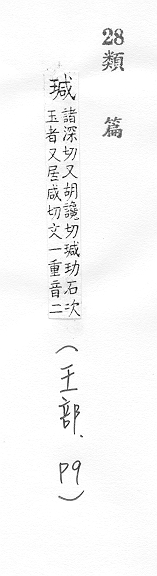 28類篇
瑊諸深切又胡讒切瑊玏石次
玉者又居咸切文一重音二
(王部、P9)